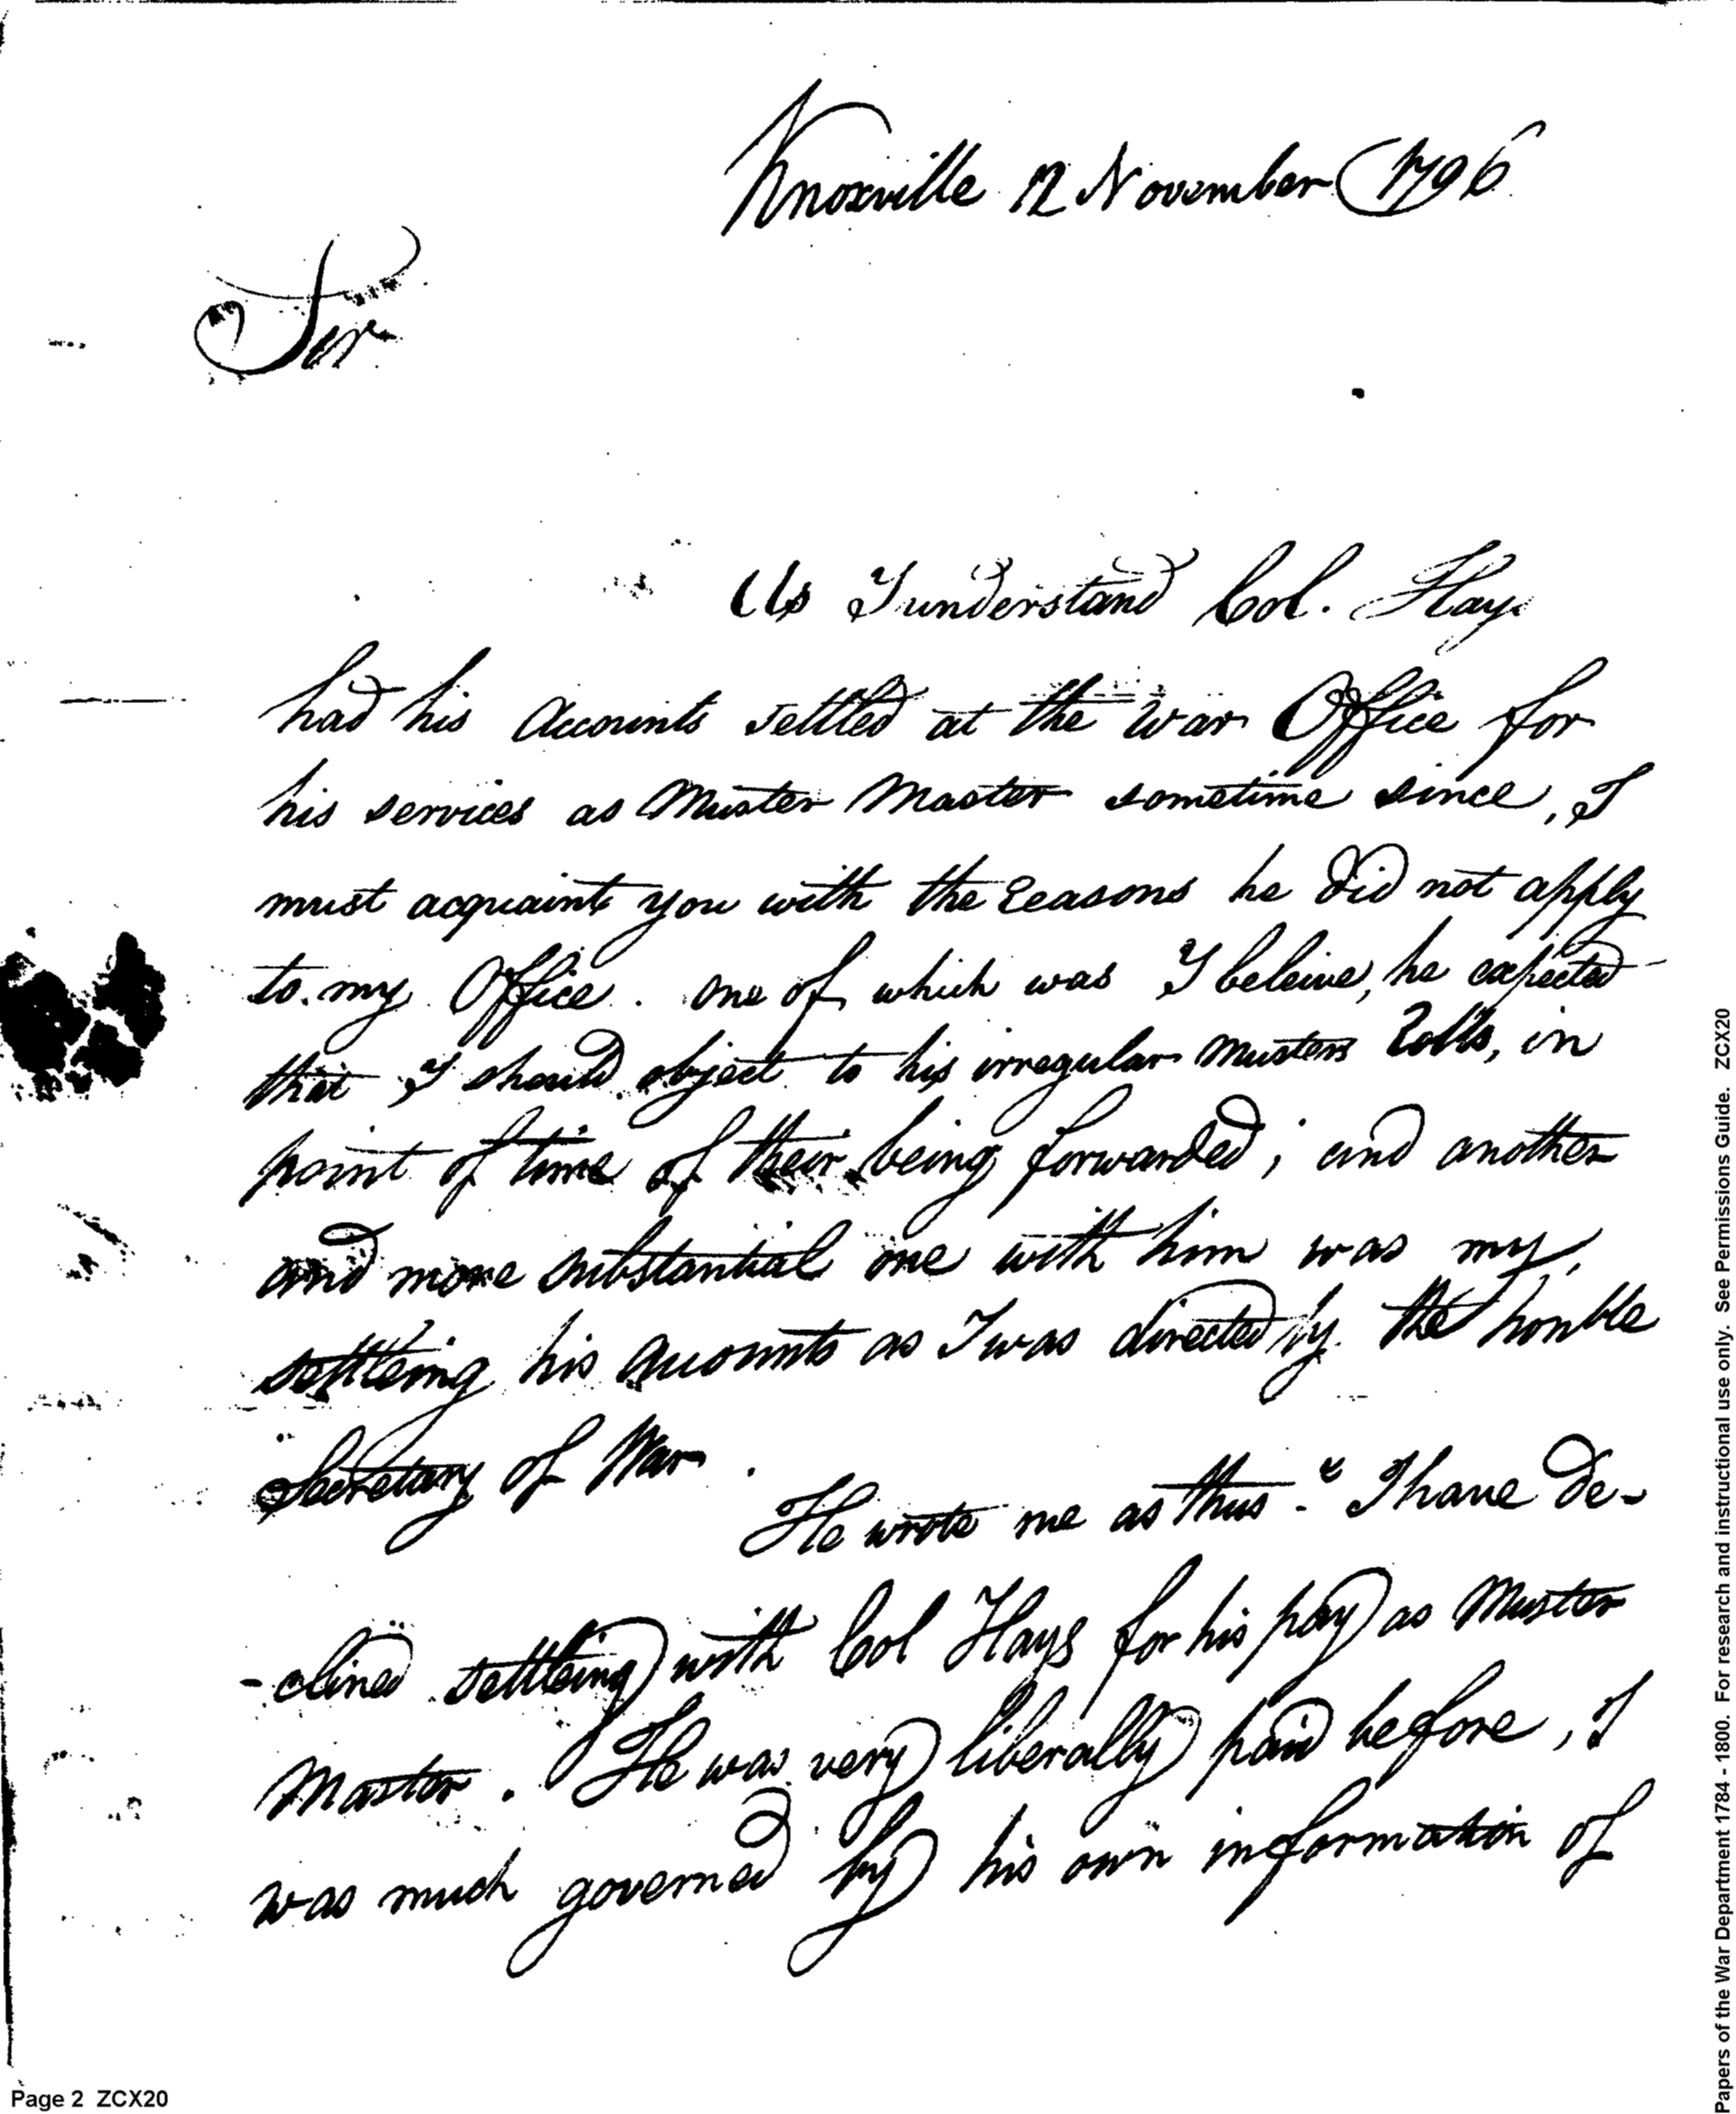 Knoxville 12 November 1796
Sir
As I understand Col. Hays
had his Accounts settled at the War Office for
his services as Muster Master sometime since, I
must acquaint you with the Reasons he did not apply
to my Office. One of which was I beleive, he expected
that I should object to his irregular musters Rolls, in
point of time of their being forwarded; and another
and more substantial one with him was my
settleing his accounts as I was directed by the honble
Secretary of War.
He wrote me as thus - "I have de-
-clined settleing with Col Hays for his pay as Muster
Master. He was very liberally paid before, I
was much governed by his own information of
Page 2 ZCX20
Papers of the War Department 1784 - 1800. For research and instructional use only. See Permissions Guide. ZCX20